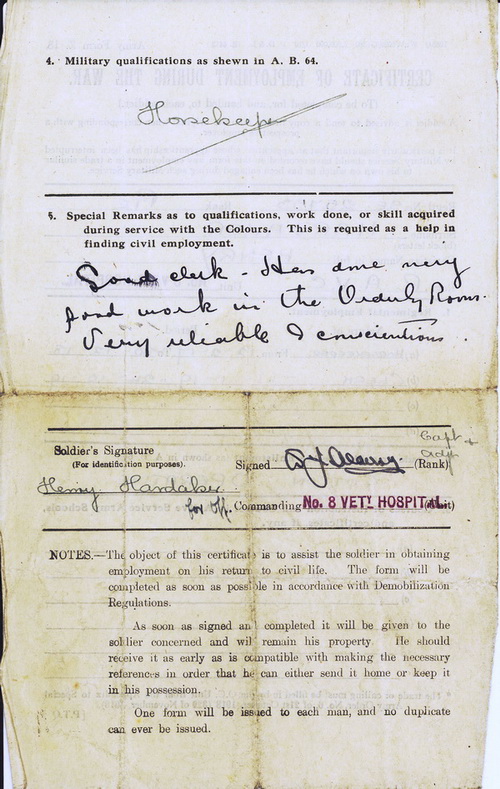 4. Military qualifications as shewn in A. B. 64.
Horsekeeper
5. Special Remarks as to qualifications, work done, or skill acquired
during service with the Colours. This is required as a help in
finding civil employment.
Good clerk - Has done very
good work in the Orderly Room.
Very reliable & conscientious.
Capt &
Adjt
Soldier's Signature
(For identification purposes).
Signed (Rank)
Henry Hardaker
for Off. Commanding No. 8 VETY HOSPITAL. (Unit)
NOTES.—The object of this certificate is to assist the soldier in obtaining
employment on his return to civil life. The form will be
completed as soon as possible in accordance with Demobilization
Regulations.
As soon as signed and completed it will be given to the
soldier concerned and will remain his property. He should
receive it as early as is compatible with making the necessary
references in order that he can either send it home or keep it
in his possession.
One form will be issued to each man, and no duplicate
can ever be issued.